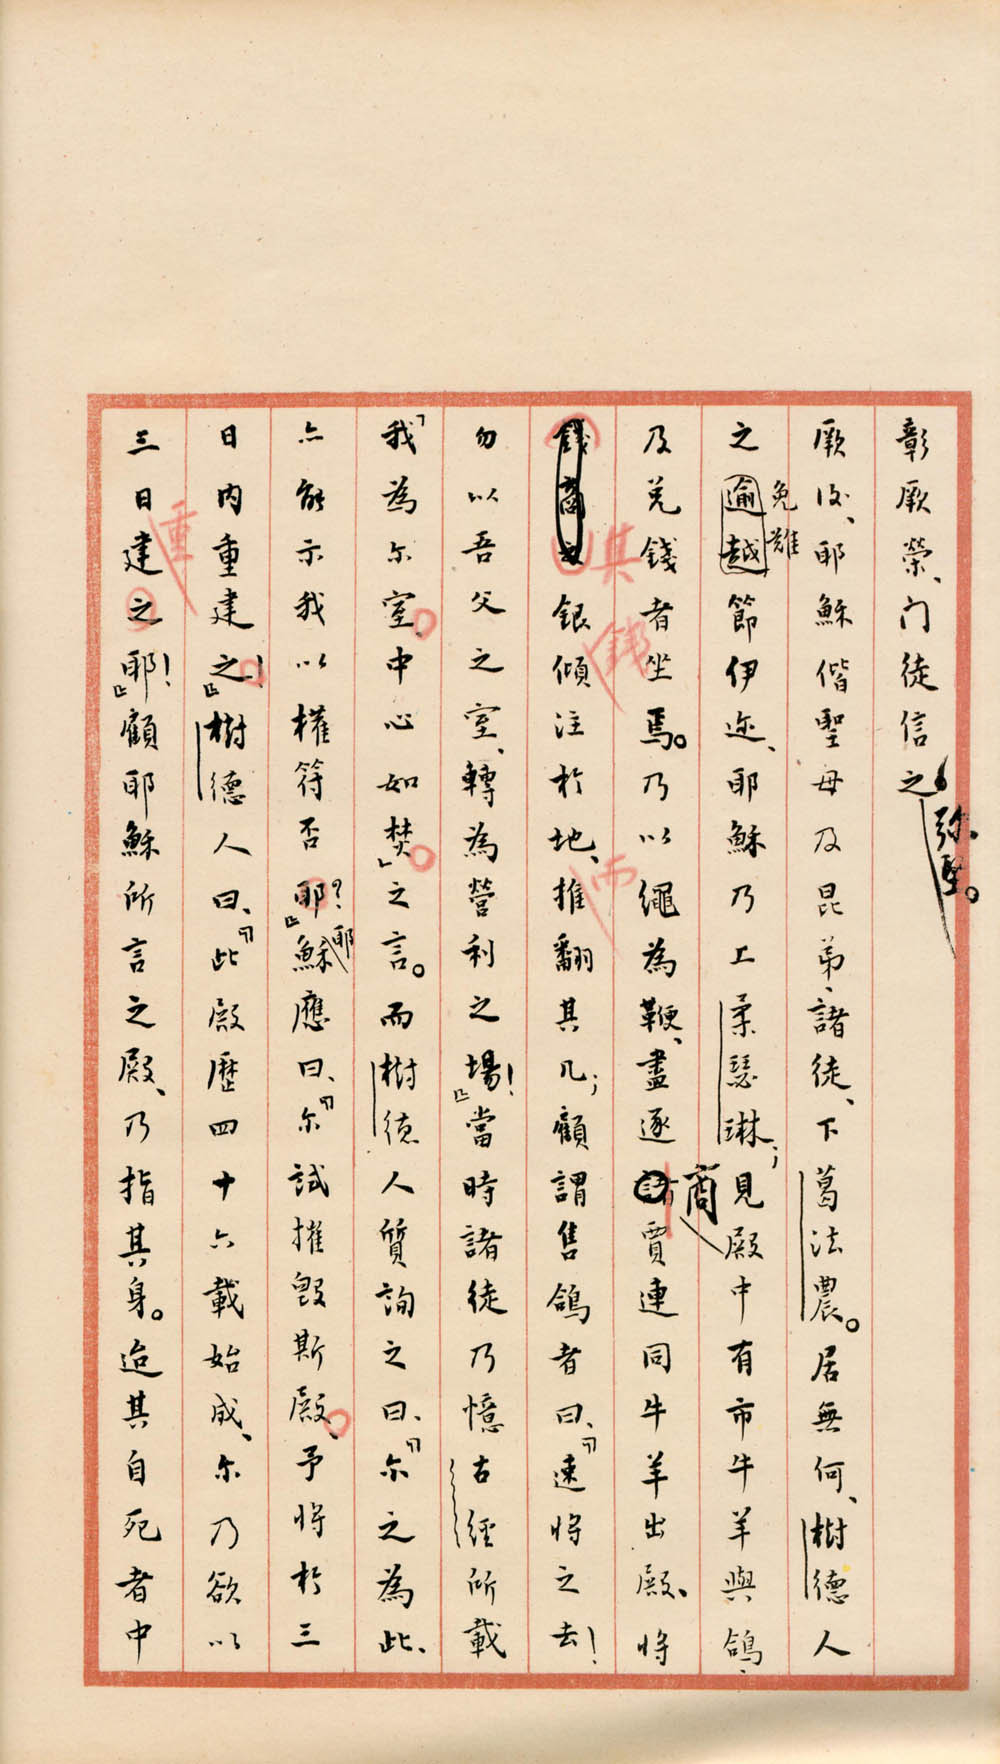 彰厥榮、门徒信之弥堅。
厥後、耶穌偕聖母及昆弟、諸徒、下葛法農。居無何、樹德人
之逾越免難節伊迩、耶穌乃上柔瑟琳；見殿中有市牛羊與鴿、
及兌錢者坐焉。乃以繩為鞭、盡逐諸商賈連同牛羊出殿、將
錢商之其銀錢傾注於地、而推翻其几；顧謂售鴿者曰、「速將之去！
勿以吾父之室、轉為營利之場！」當時諸徒乃憶古經所載
「我為尔室、中心如焚」之言。而樹德人質詢之曰、「尔之為此、
亦能示我以權符否？」耶穌應曰、「尔試摧毀斯殿、予將於三
日內重建之！」樹德人曰、「此殿歷四十六載始成、尔乃欲以
三日重建之耶！」顧耶穌所言之殿、乃指其身。迨其自死者中